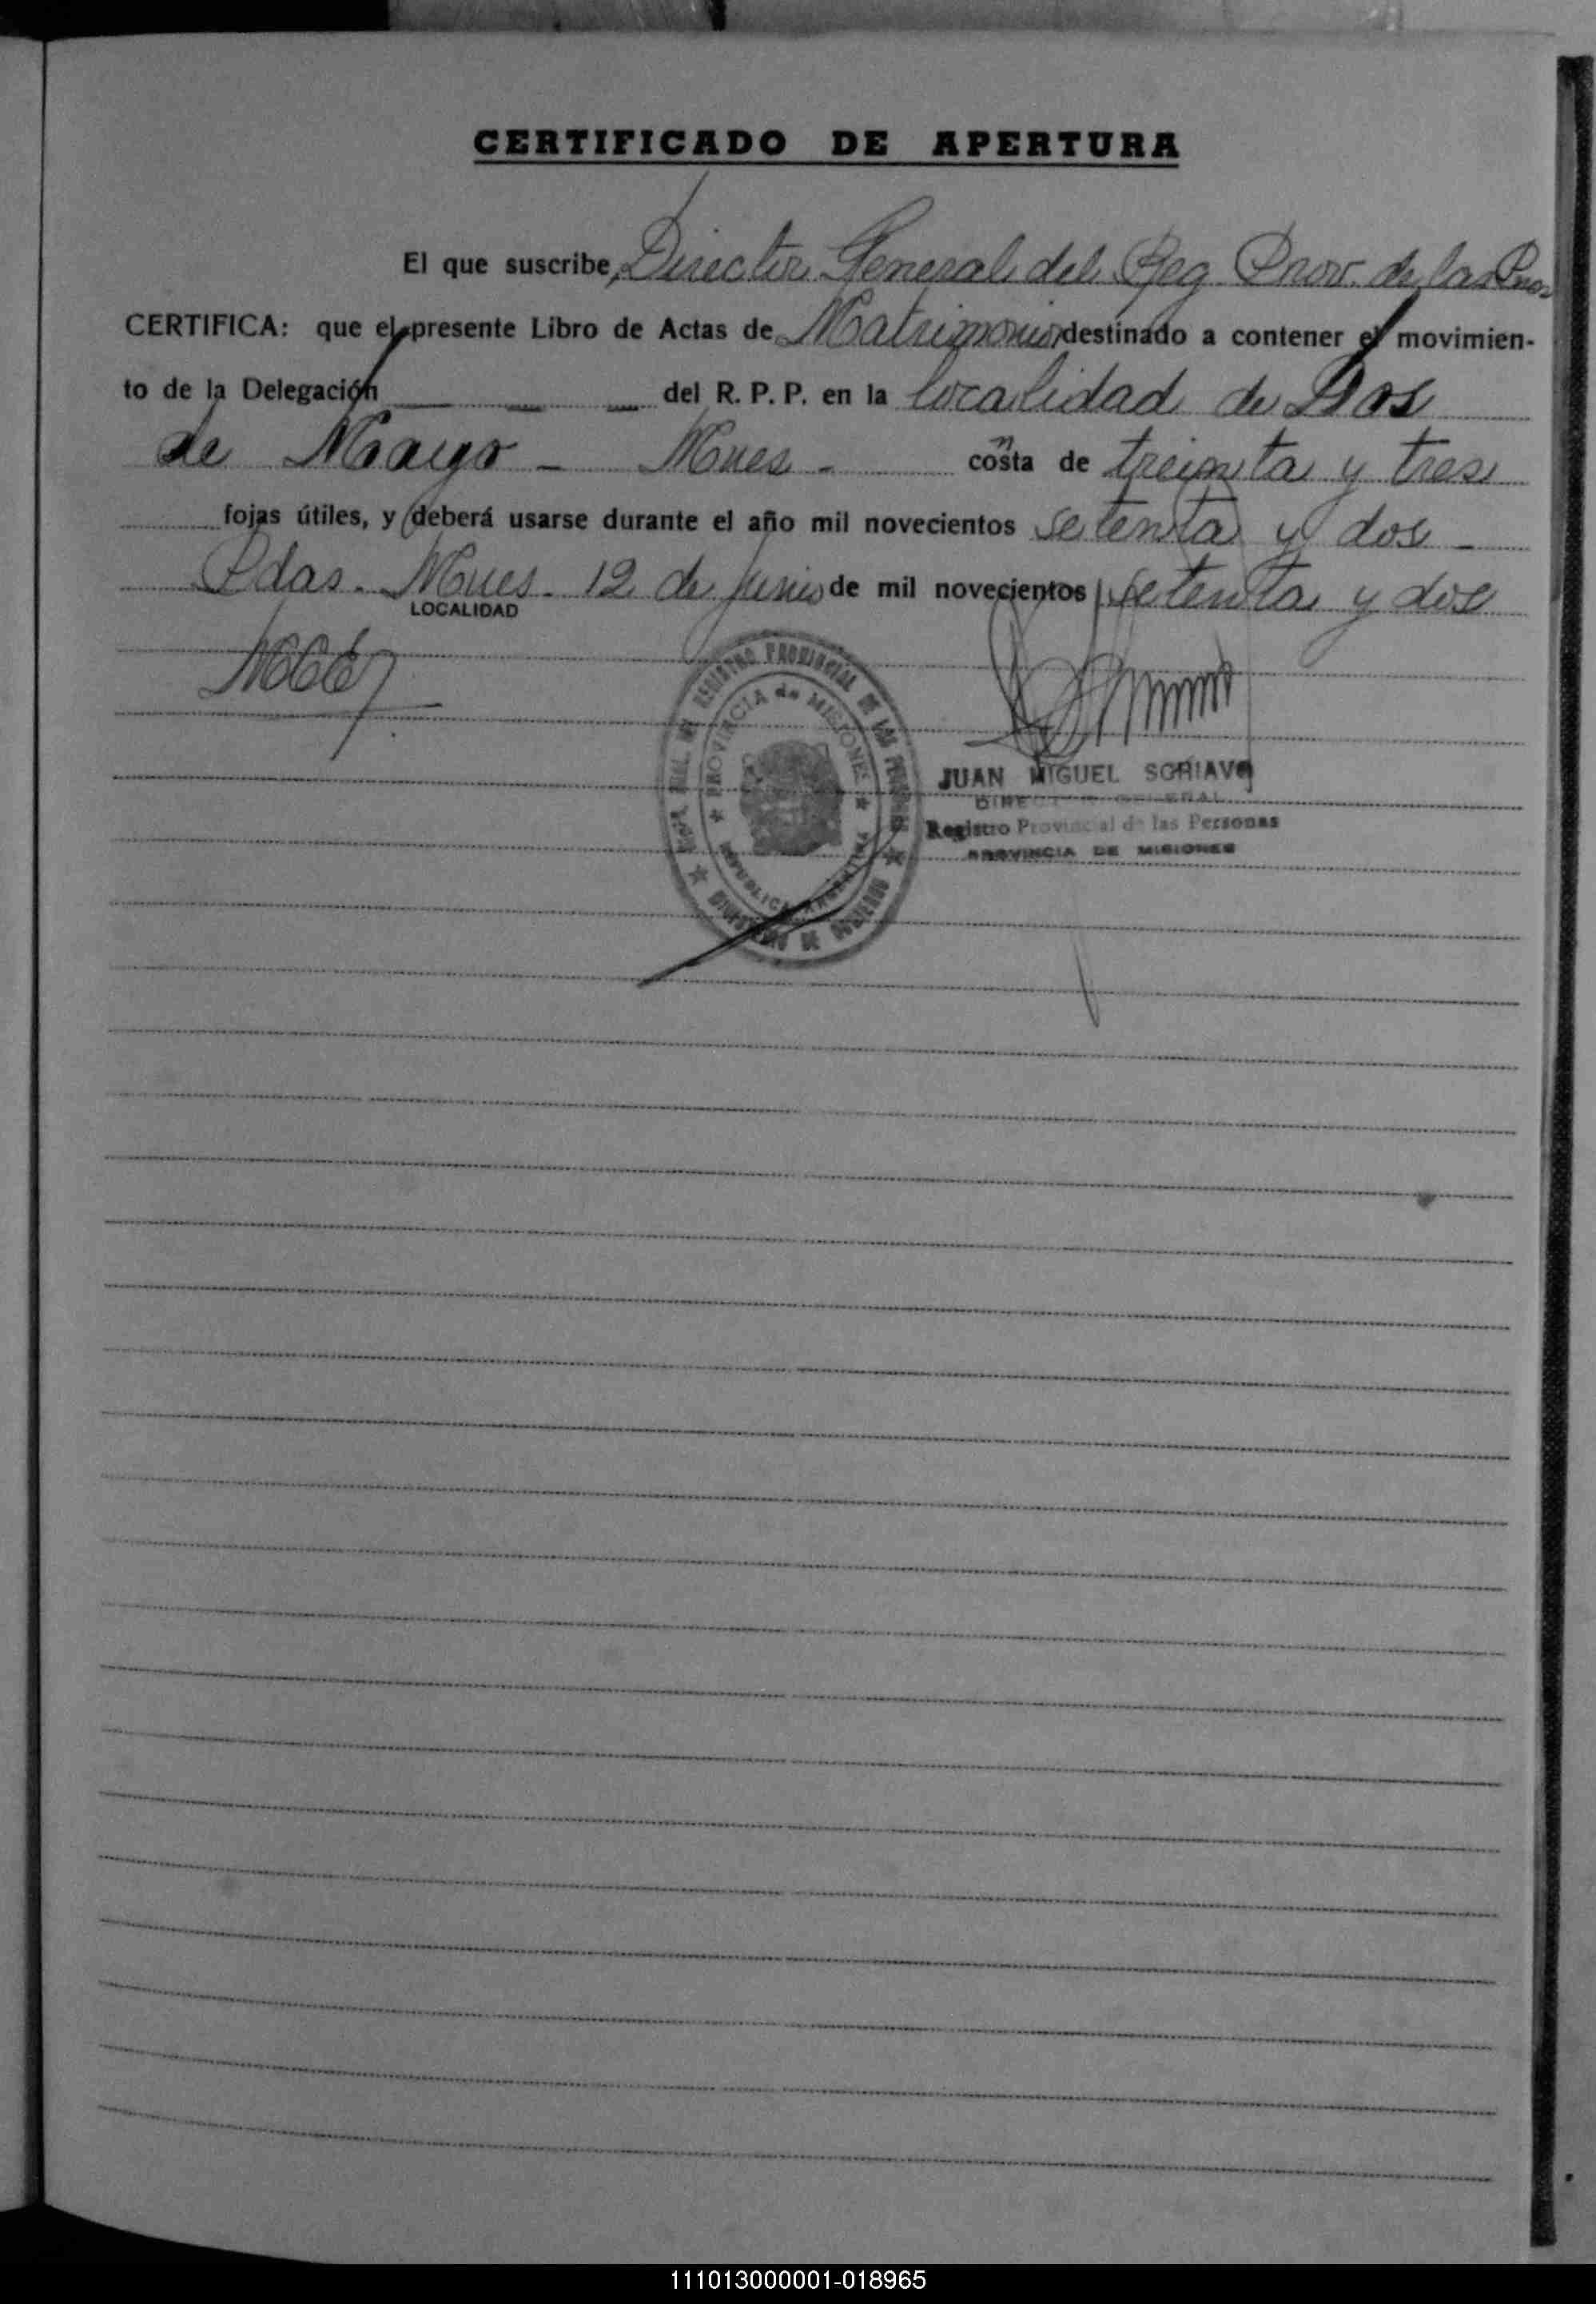 CERTIFICADO DE APERTURA
El que suscribe, Director General del Reg. Prov. de las Pnas
CERTIFICA: que el presente Libro de Actas de Matrimonios destinado a contener el movimien-
to de la Delegación del R. P. P. en la localidad de Dos
de Mayo - Mnes - consta de treinta y tres
fojas útiles, y deberá usarse durante el año mil novecientos setenta y dos -
Pdas. Mnes. 12 de junio de mil novecientos setenta y dos
LOCALIDAD
REGISTRO PROVINCIAL DE LAS PERSONAS
PROVINCIA de MISIONES
REPUBLICA ARGENTINA
MINISTERIO DE GOBIERNO
JUAN MIGUEL
DIRECTOR GENERAL
Registro Provincial de las Personas
PROVINCIA DE MISIONES
111013000001-018965